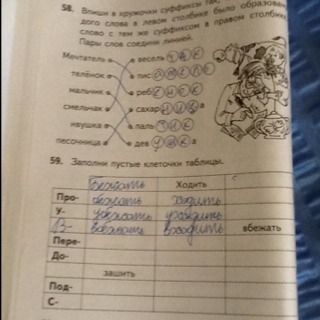 58. Впиши в кружочки суффиксы так,
дого слова в левом столбике было образован
слово с тем же суффиксом в правом столбик
Пары слов соедини линией.
Мечтатель весельчак
телёнок писатель
мальчик реб
смельчак сахарница
ивушка пальчик
песочница девушка
59. Заполни пустые клеточки таблицы.
Бежать Ходить
Про-
У- убежать уходить
В- вбежать входить вбежать
Пере-
До-
зашить
Под-
С-